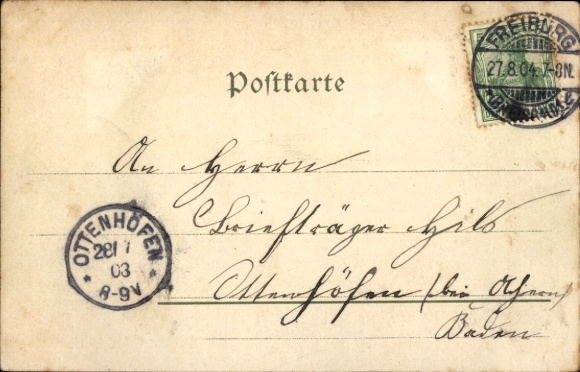 Postkarte
FREIBURG
27.8.04.7-8N.
An Herrn
Briefträger Hils
Ottenhöfen (bei Achern)
Baden
OTTENHÖFEN
03
8-9V